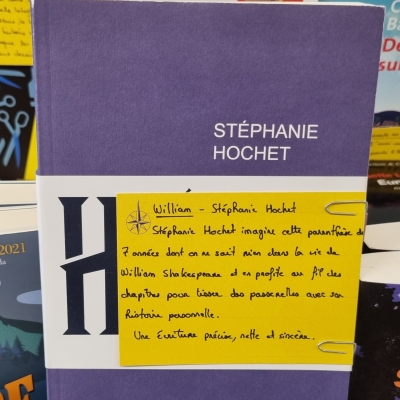 STÉPHANIE
HOCHET
William - Stéphanie Hochet
Stéphanie Hochet imagine cette parenthèse de
7 années dont on ne sait rien dans la vie de
William Shakespeare et en profite au fil des
chapitres pour tisser des passerelles avec son
histoire personnelle.
Une Écriture précise, nette et sincère.
2021